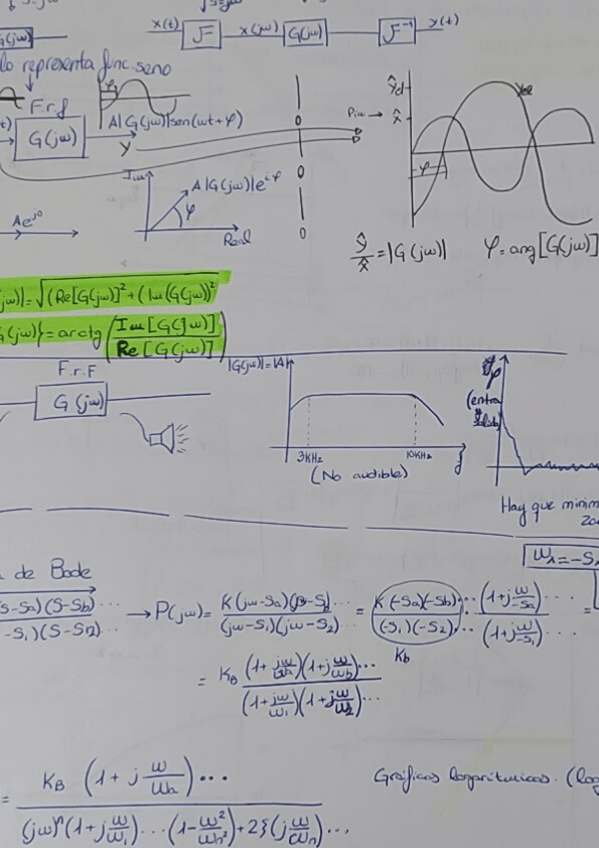 x(t) F x(jω) G(jω) F⁻¹ y(t)
G(jω)
lo representa func. seno
F.r.f
G(jω)
φ
A|G(jω)|sen(ωt+φ)
y
Im
A|G(jω)|e^jφ
φ
Real
Ae^j0
ŷ
x̂
φ
ŷ/x̂ = |G(jω)| φ = ang[G(jω)]
jω)| = √((Re[G(jω)]² + (Im(G(jω))²
G(jω)} = arctg (Im[G(jω)] / Re[G(jω)])
F.r.F
G(jω)
|G(jω)| = |A|
3KHz 10KHz f
(No audible)
φ
(entra
Hay que minim
ωₐ = -S
de Bode
(s-Sa)(S-Sb)... / -S₁)(S-S₂)... → P(jω) = K(jω-Sa)(jω-Sb)... / (jω-S₁)(jω-S₂)... = K(-Sa)(-Sb)... / (-S₁)(-S₂)... · (1+j ω/-Sa)... / (1+j ω/-S₁)... =
Kb
= K_B (1+ jω/ωa)(1+ jω/ωb)... / (1+ jω/ω₁)(1+ jω/ω₂)...
= K_B (1 + j ω/ωa)... / (jω)ⁿ(1+j ω/ω₁)...(1- ω²/ωn²)+2ξ(j ω/ωn)...
Gráficos logarítmicos. (log